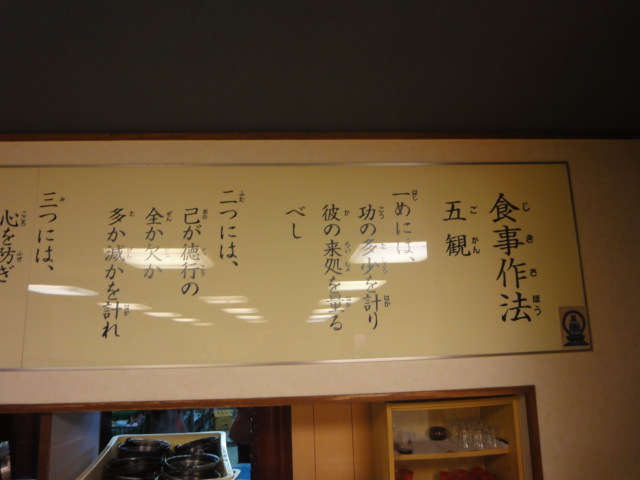 食事作法
五観
一めには、
功の多少を計り
彼の来処を量る
べし
二つには、
己が徳行の
全か欠か
多か減かを計れ
三つには、
心を防ぎ